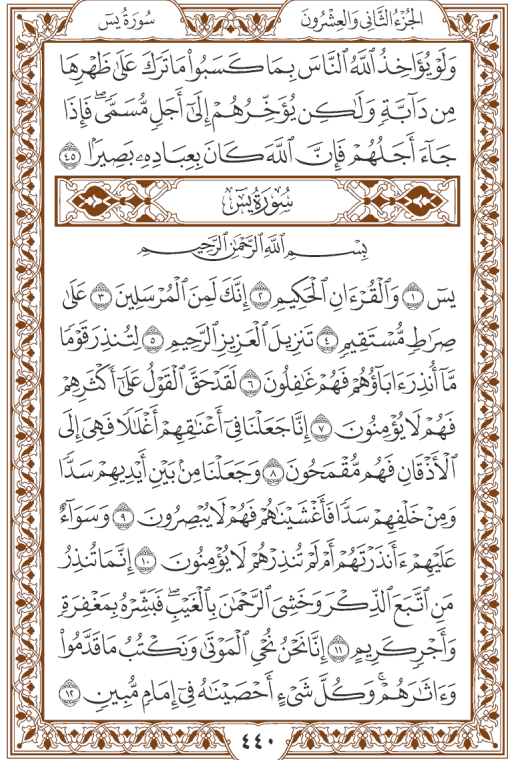 سُورَةُ يسٓ
الجُزْءُ الثَّانِي وَالعِشْرُونَ
وَلَوْ يُؤَاخِذُ ٱللَّهُ ٱلنَّاسَ بِمَا كَسَبُواْ مَا تَرَكَ عَلَىٰ ظَهْرِهَا
مِن دَآبَّةٖ وَلَٰكِن يُؤَخِّرُهُمۡ إِلَىٰٓ أَجَلٖ مُّسَمّٗىۖ فَإِذَا
جَآءَ أَجَلُهُمۡ فَإِنَّ ٱللَّهَ كَانَ بِعِبَادِهِۦ بَصِيرَۢا ٤٥
سُورَةُ يسٓ
بِسۡمِ ٱللَّهِ ٱلرَّحۡمَٰنِ ٱلرَّحِيمِ
يسٓ ١ وَٱلۡقُرۡءَانِ ٱلۡحَكِيمِ ٢ إِنَّكَ لَمِنَ ٱلۡمُرۡسَلِينَ ٣ عَلَىٰ
صِرَٰطٖ مُّسۡتَقِيمٖ ٤ تَنزِيلَ ٱلۡعَزِيزِ ٱلرَّحِيمِ ٥ لِتُنذِرَ قَوۡمٗا
مَّآ أُنذِرَ ءَابَآؤُهُمۡ فَهُمۡ غَٰفِلُونَ ٦ لَقَدۡ حَقَّ ٱلۡقَوۡلُ عَلَىٰٓ أَكۡثَرِهِمۡ
فَهُمۡ لَا يُؤۡمِنُونَ ٧ إِنَّا جَعَلۡنَا فِيٓ أَعۡنَٰقِهِمۡ أَغۡلَٰلٗا فَهِيَ إِلَى
ٱلۡأَذۡقَانِ فَهُم مُّقۡمَحُونَ ٨ وَجَعَلۡنَا مِنۢ بَيۡنِ أَيۡدِيهِمۡ سَدّٗا
وَمِنۡ خَلۡفِهِمۡ سَدّٗا فَأَغۡشَيۡنَٰهُمۡ فَهُمۡ لَا يُبۡصِرُونَ ٩ وَسَوَآءٌ
عَلَيۡهِمۡ ءَأَنذَرۡتَهُمۡ أَمۡ لَمۡ تُنذِرۡهُمۡ لَا يُؤۡمِنُونَ ١٠ إِنَّمَا تُنذِرُ
مَنِ ٱتَّبَعَ ٱلذِّكۡرَ وَخَشِيَ ٱلرَّحۡمَٰنَ بِٱلۡغَيۡبِۖ فَبَشِّرۡهُ بِمَغۡفِرَةٖ
وَأَجۡرٖ كَرِيمٍ ١١ إِنَّا نَحۡنُ نُحۡيِ ٱلۡمَوۡتَىٰ وَنَكۡتُبُ مَا قَدَّمُواْ
وَءَاثَٰرَهُمۡۚ وَكُلَّ شَيۡءٍ أَحۡصَيۡنَٰهُ فِيٓ إِمَامٖ مُّبِينٖ ١٢
٤٤٠